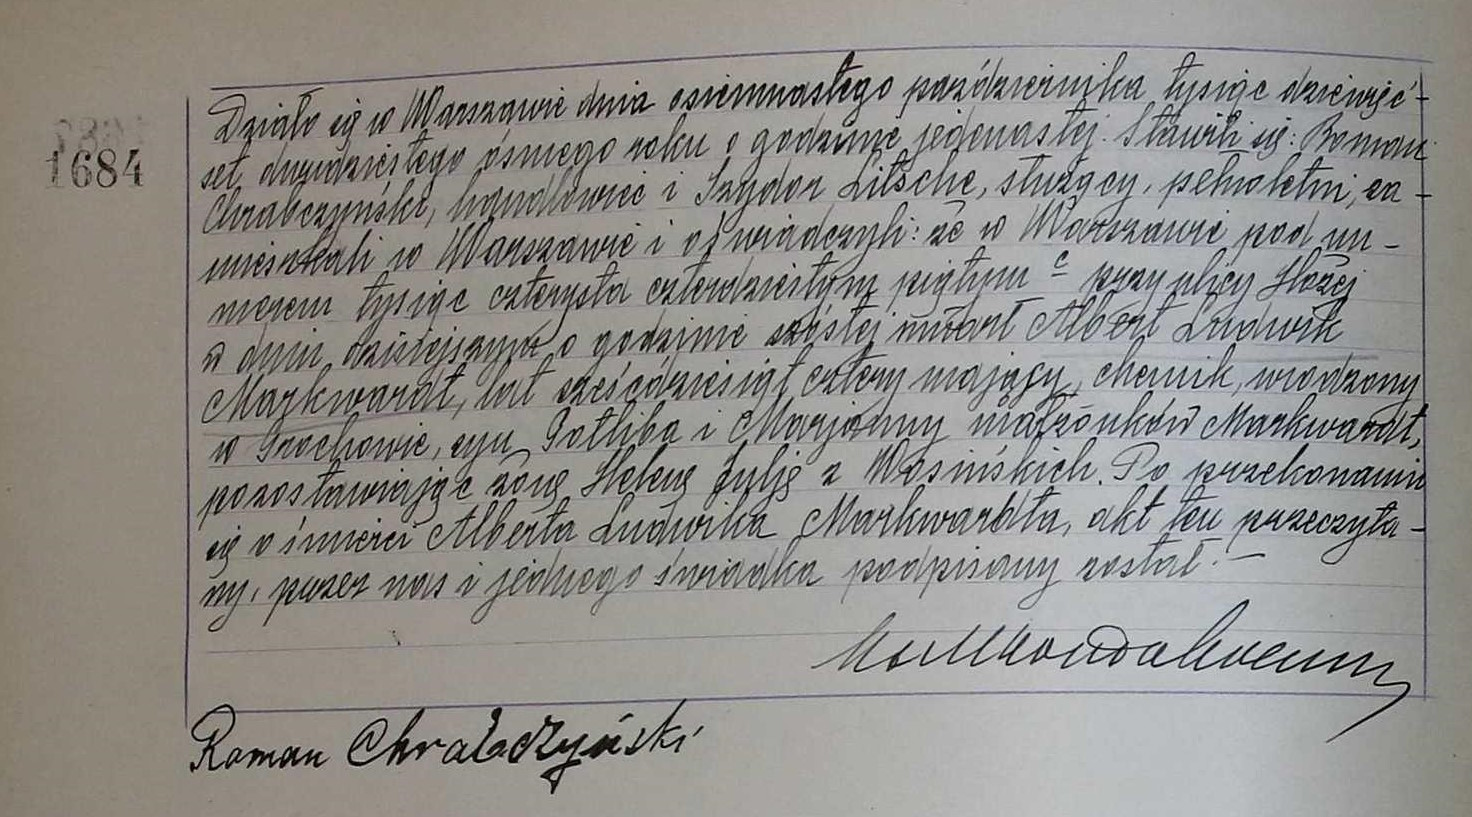 1684
Działo się w Warszawie dnia osiemnastego października tysiąc dziewięć-
set dwudziestego ósmego roku o godzinie jedenastej. Stawili się: Roman
Chrabczyński, handlowiec i Izydor Litsche, służący, pełnoletni, za-
mieszkali w Warszawie i oświadczyli: że w Warszawie pod nu-
merem tysiąc czterysta czterdziestym piątym c przy ulicy Hożej
w dniu dzisiejszym o godzinie szóstej umarł Albert Ludwik
Markwardt, lat sześćdziesiąt cztery mający, chemik, urodzony
w Grochowie, syn Gotliba i Marjanny małżonków Markwardt,
pozostawiając żonę Helenę Julję z Wosińskich. Po przekonaniu
się o śmierci Alberta Ludwika Markwardta, akt ten przeczyta-
ny, przez nas i jednego świadka podpisany został.–
Roman Chrabczyński